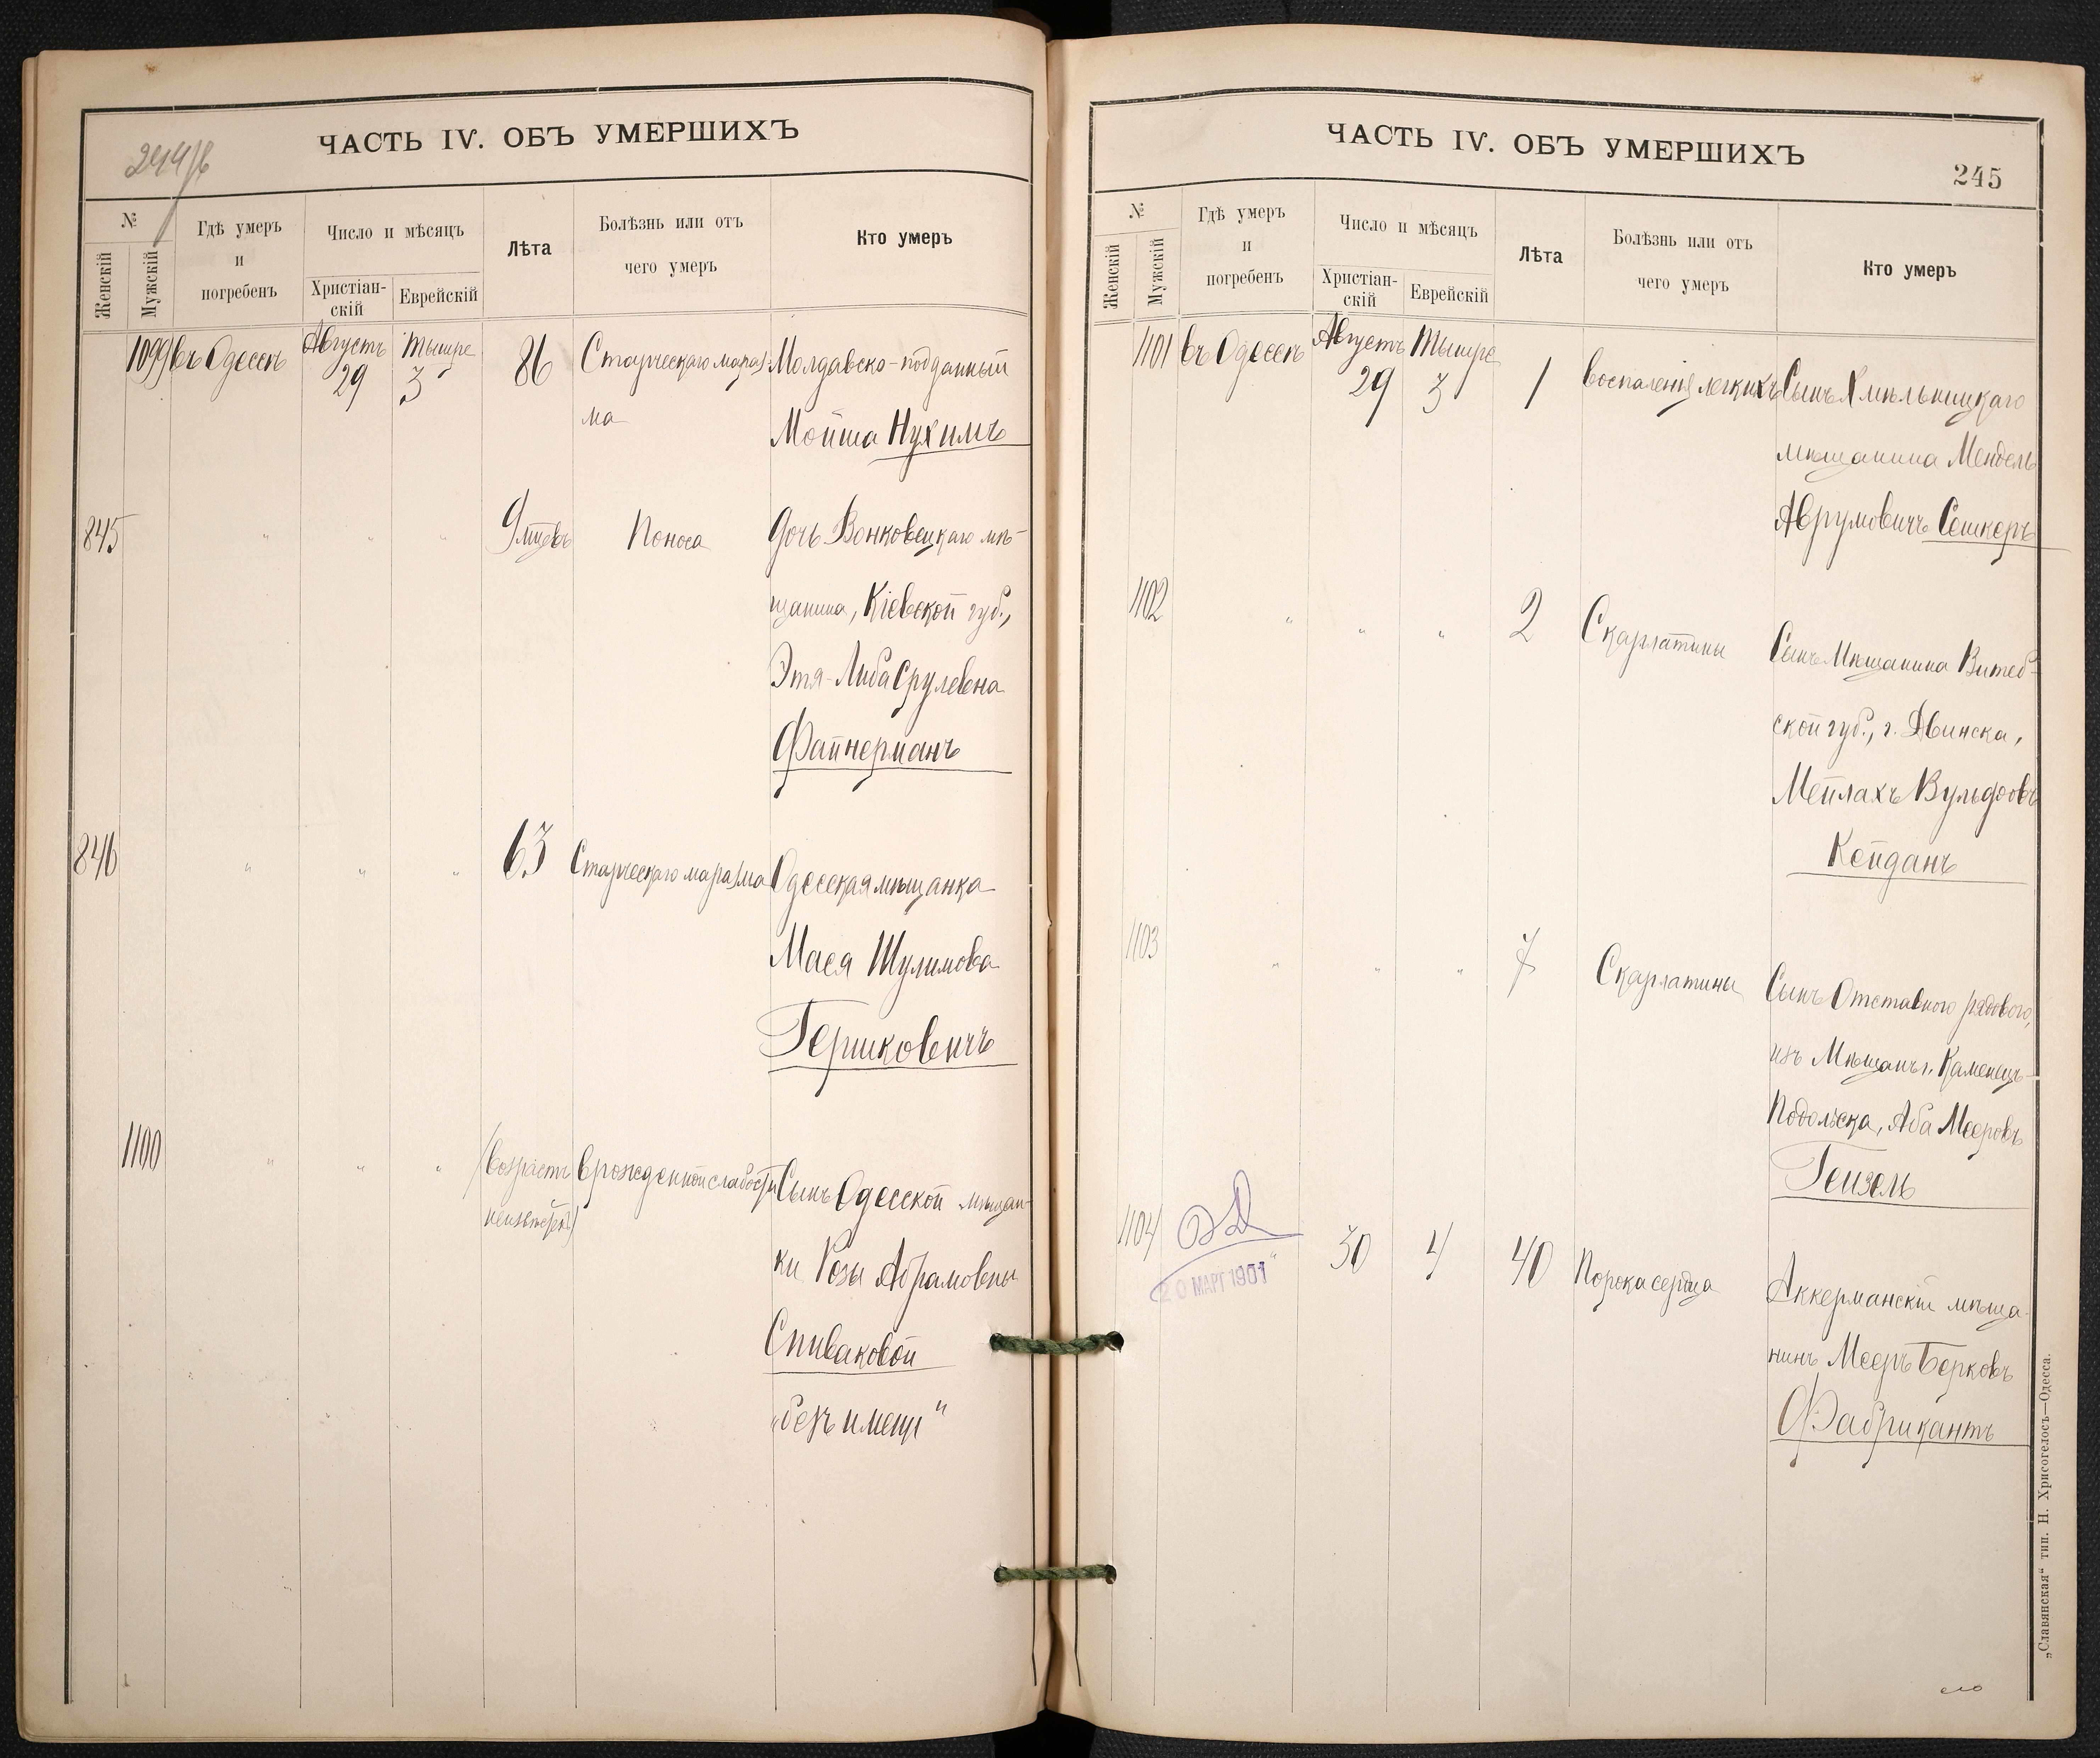 244/б
ЧАСТЬ IV. ОБЪ УМЕРШИХЪ
№
Женскій
Мужскій
Гдѣ умеръ
и
погребенъ
Число и мѣсяцъ
Христіан-
скій
Еврейскій
Лѣта
Болѣзнь или отъ
чего умеръ
Кто умеръ
1099 въ Одессѣ Августъ 29 Тишре 3 86 Старческаго мараз-
ма
Молдавско-подданный
Мойша Нухимъ
845 " " " 9 мцевъ Поноса Дочь Вонковецкаго мѣ-
щанина, Кіевской губ.,
Этя-Либа Срулевна
Файнерманъ
846 " " " 63 Старческаго маразма Одесская мѣщанка
Мася Шулимова
Гершковичъ
1100 " " " (возрастъ
неизвѣст.)
врожденной слабости Сынъ Одесской мѣщан-
ки Розы Абрамовны
Спиваковой
„безъ имени"
ЧАСТЬ IV. ОБЪ УМЕРШИХЪ
245
№
Женскій
Мужскій
Гдѣ умеръ
и
погребенъ
Число и мѣсяцъ
Христіан-
скій
Еврейскій
Лѣта
Болѣзнь или отъ
чего умеръ
Кто умеръ
1101 въ Одессѣ Августъ 29 Тишре 3 1 воспаленія легкихъ Сынъ Хмѣльницкаго
мѣщанина Мендель
Аврумовичъ Сешкеръ
1102 " " " 2 Скарлатины Сынъ Мѣщанина Витеб-
ской губ., г. Двинска,
Мейлахъ Вульфовъ
Кейданъ
1103 " " " 7 Скарлатины Сынъ Отставного рядового,
изъ Мѣщанъ г. Каменецъ-
Подольска, Аба Мееровъ
Гензель
1104 " 30 4 40 Порока сердца Аккерманскій мѣща-
нинъ Мееръ Берковъ
Фабрикантъ
20 МАРТ 1901
„Славянская" тип. Н. Хрисогелосъ—Одесса.